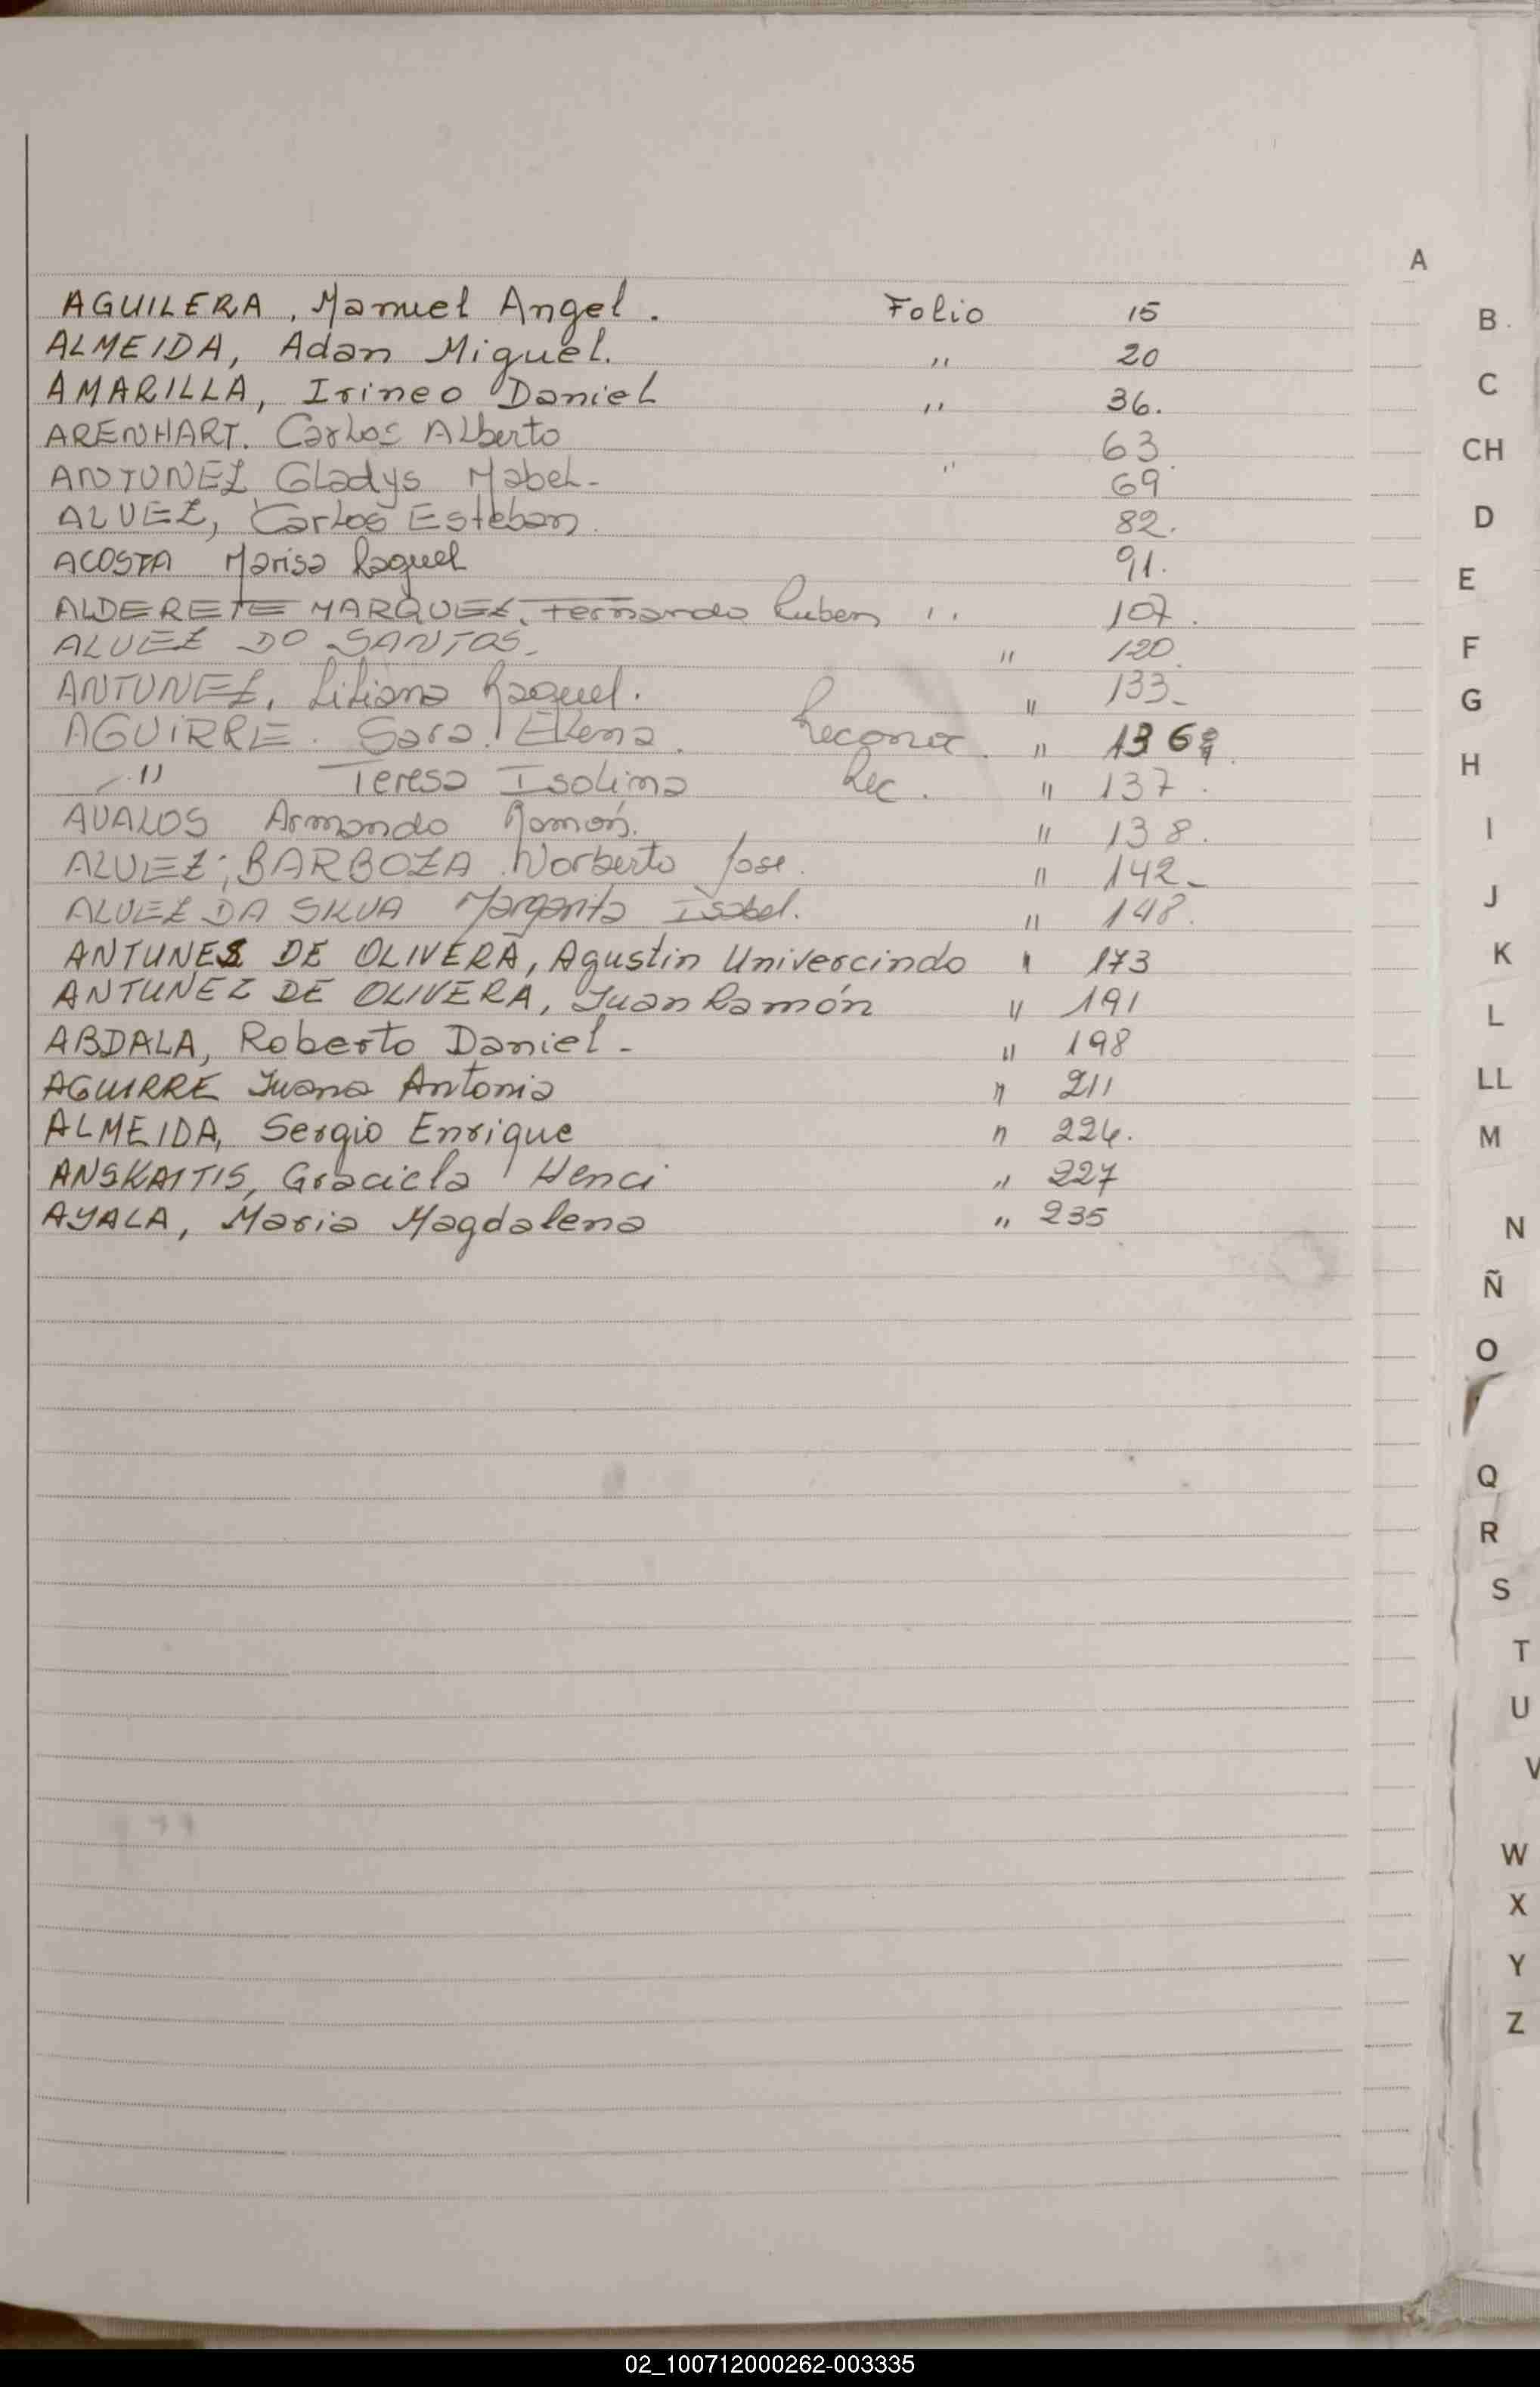 A
AGUILERA, Manuel Angel. Folio 15
ALMEIDA, Adan Miguel. " 20
AMARILLA, Irineo Daniel " 36.
ARENHART. Carlos Alberto 63
ANTUNEZ Gladys Mabel- " 69
ALVEZ, Carlos Esteban. 82.
ACOSTA Marisa Raquel 91.
ALDERETE MARQUEZ, Fernando Ruben " 107.
ALVEZ DO SANTOS- " 120.
ANTUNEZ, Liliana Raquel. " 133-
AGUIRRE. Sara Elena. Reconoc. " 136
" Teresa Isolina Rec. " 137.
AVALOS Armando Ramón. " 138.
ALVEZ; BARBOZA Norberto Jose. " 142-
ALVEZ DA SILVA Margarita Isabel. " 148.
ANTUNES DE OLIVERA, Agustin Univercindo " 173
ANTUNEZ DE OLIVERA, Juan Ramón " 191
ABDALA, Roberto Daniel- " 198
AGUIRRE Juana Antonia " 211
ALMEIDA, Sergio Enrique " 224.
ANSKAITIS, Graciela Henci " 227
AYALA, Maria Magdalena " 235
B
C
CH
D
E
F
G
H
I
J
K
L
LL
M
N
Ñ
O
Q
R
S
T
U
V
W
X
Y
Z
02_100712000262-003335